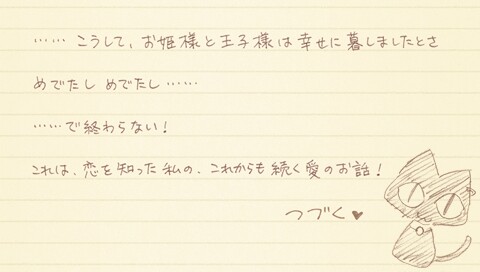 …… こうして、お姫様と王子様は幸せに暮しましたとさ
めでたし めでたし ……
……で終わらない！
これは、恋を知った私の、これからも続く愛のお話！
つづく♥